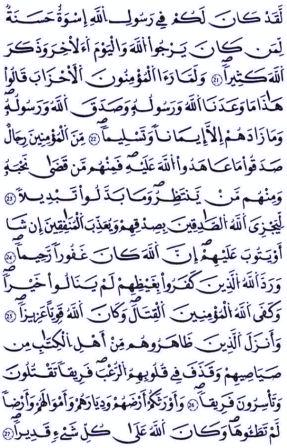 لَّقَدْ كَانَ لَكُمْ فِي رَسُولِ اللَّهِ إِسْوَةٌ حَسَنَةٌ
لِّمَن كَانَ يَرْجُواْ اللَّهَ وَالْيَوْمَ اَ۬لَاخِرَ وَذَكَرَ
اللَّهَ كَثِيراً 21 وَلَمَّا رَءَا اَ۬لْمُؤْمِنُونَ اَ۬لَاحْزَابَ قَالُواْ
هَٰذَا مَا وَعَدَنَا اَللَّهُ وَرَسُولُهُۥ وَصَدَقَ اَللَّهُ وَرَسُولُهُۥ
وَمَا زَادَهُمُۥٓ إِلَّآ إِيمَاناً وَتَسْلِيماً 22 مِّنَ اَلْمُؤْمِنِينَ رِجَالٌ
صَدَقُواْ مَا عَاهَدُواْ اللَّهَ عَلَيْهِ فَمِنْهُم مَّن قَضَىٰ نَحْبَهُۥ
وَمِنْهُم مَّنْ يَّنتَظِرُ وَمَا بَدَّلُواْ تَبْدِيلاً 23
لِّيَجْزِيَ اَللَّهُ الصَّادِقِينَ بِصِدْقِهِمْ وَيُعَذِّبَ اَلْمُنَافِقِينَ إِن شَآ
أَوْ يَتُوبَ عَلَيْهِمُۥٓ إِنَّ اَللَّهَ كَانَ غَفُوراً رَّحِيماً 24
وَرَدَّ اَللَّهُ الَّذِينَ كَفَرُواْ بِغَيْظِهِمْ لَمْ يَنَالُواْ خَيْراً
وَكَفَى اَللَّهُ الْمُؤْمِنِينَ اَلْقِتَالَ وَكَانَ اَللَّهُ قَوِيّاً عَزِيزاً 25
وَأَنزَلَ اَلَّذِينَ ظَاهَرُوهُم مِّنَ اَهْلِ اِلْكِتَٰبِ مِن
صَيَاصِيهِمْ وَقَذَفَ فِي قُلُوبِهِمُ اُلرُّعْبَ فَرِيقاً تَقْتُلُونَ
وَتَاسِرُونَ فَرِيقاً 26 وَأَوْرَثَكُمُۥٓ أَرْضَهُمْ وَدِيَارَهُمْ وَأَمْوَالَهُمْ وَأَرْضاً
لَّمْ تَطَـُٔوهَا وَكَانَ اَللَّهُ عَلَىٰ كُلِّ شَيْءٍ قَدِيراً 27